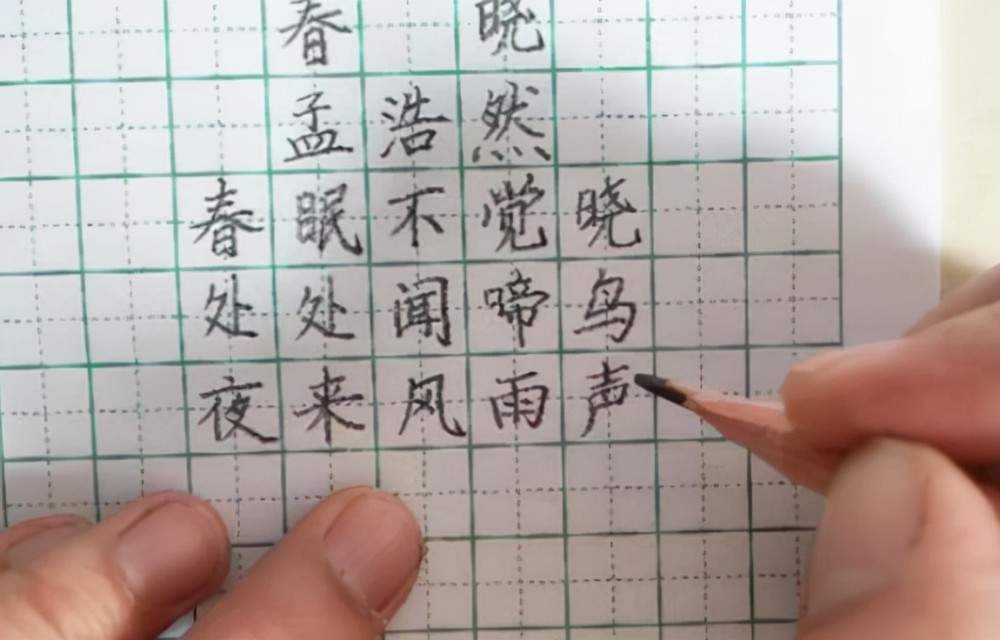 春晓
孟浩然
春眠不觉晓
处处闻啼鸟
夜来风雨声